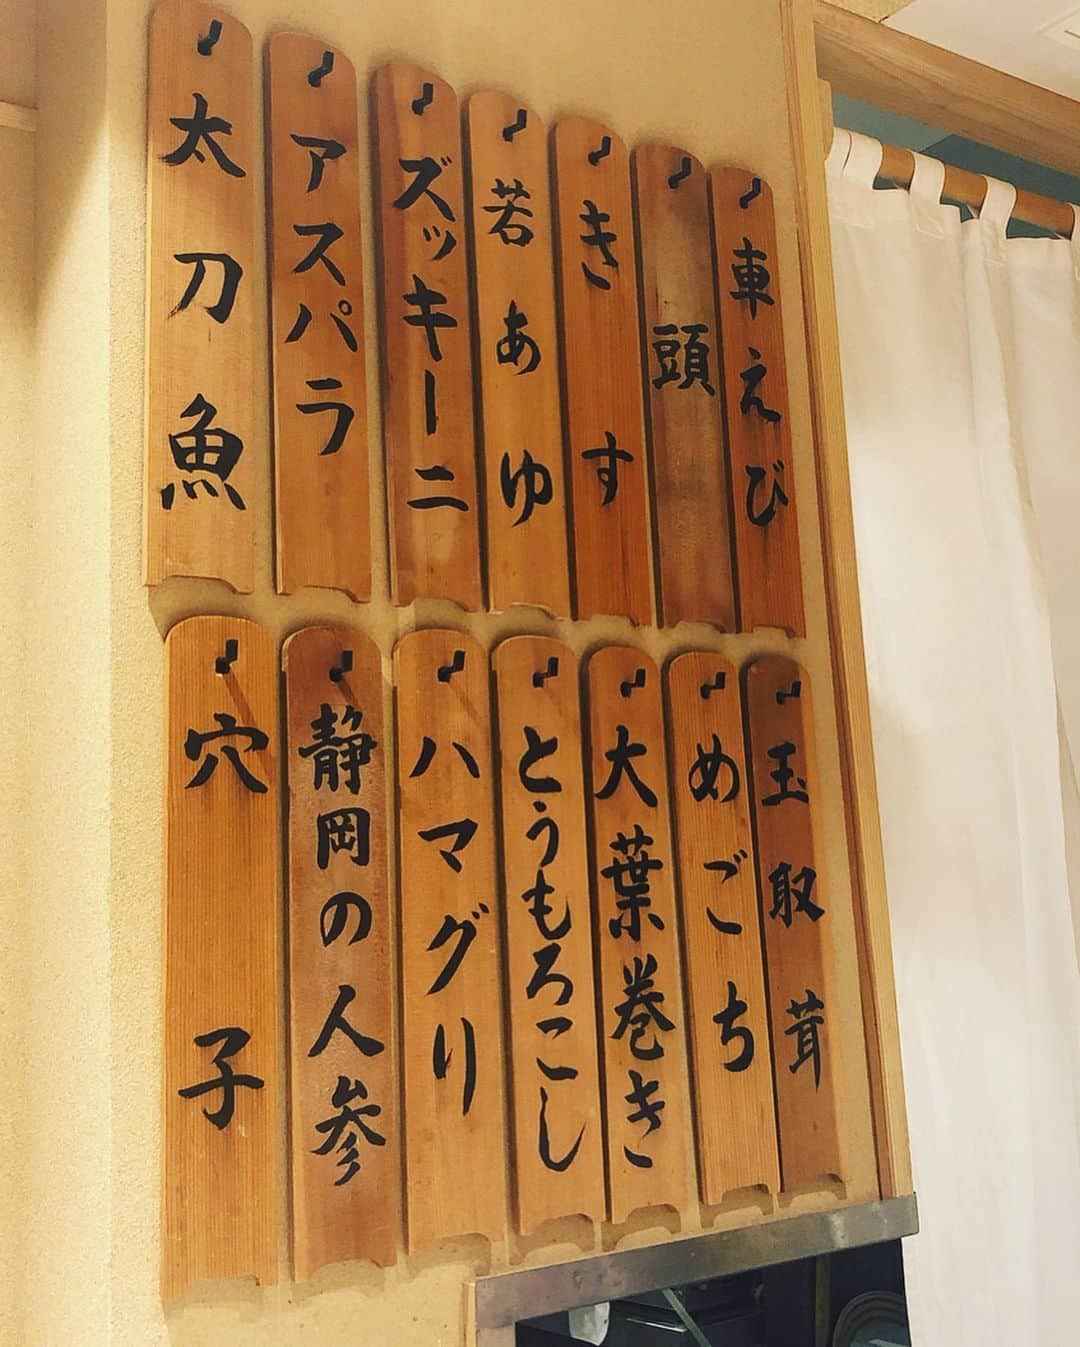 車えび
頭
きす
若あゆ
ズッキーニ
アスパラ
太刀魚
玉取茸
めごち
大葉巻き
とうもろこし
ハマグリ
静岡の人参
穴子